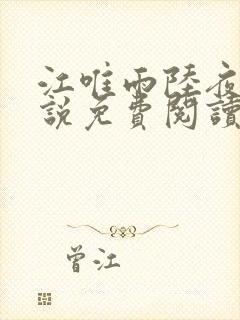 江唯雨陸夜
說免費閱讀
曾江